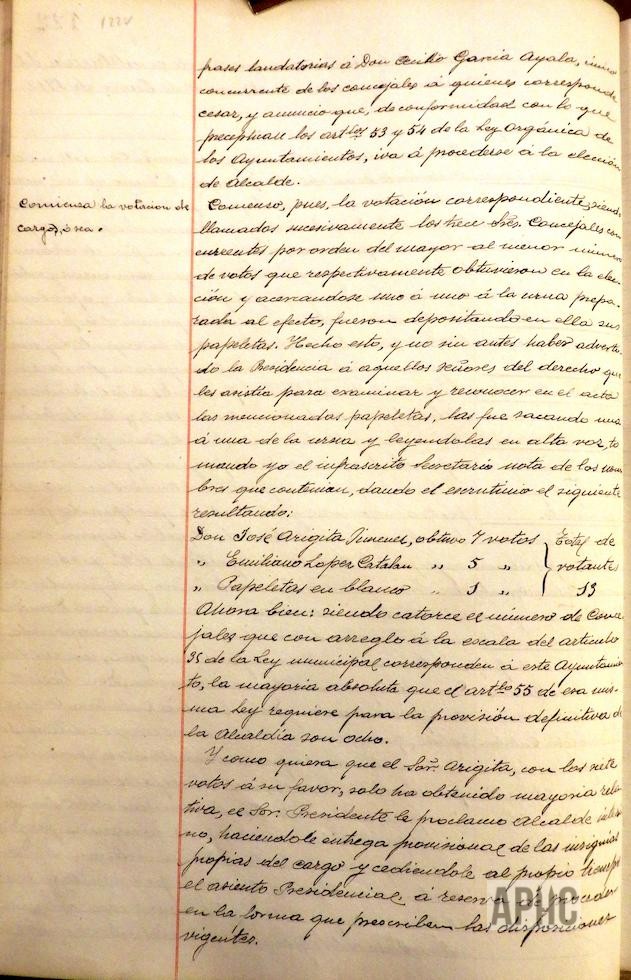 frases laudatorias á Don Cecilio Garcia Ayala, único
concurrente de los concejales á quienes corresponde
cesar, y anuncio que, de conformidad con lo que
preceptuan los artlos 53 y 54 de la Ley Orgánica de
los Ayuntamientos, iva á procederse á la elección
de Alcalde.
Comienza la votacion de
cargos, ó sea.
Comenso, pues, la votación correspondiente, siendo
llamados sucesivamente los trece Sres. Concejales con
currentes por orden del mayor al menor número
de votos que respectivamente obtuvieron en la elec-
ción y acercandose uno á uno á la urna prepa-
rada al efecto, fueron depositando en ella sus
papeletas. Hecho esto, y no sin antes haber adverti
do la Presidencia á aquellos señores del derecho que
les asistia para examinar y reconocer en el acto
las mencionadas papeletas, las fue sacando una
á una de la urna y leyendolas en alta voz, to
mando yo el infrascrito Secretario nota de los nom
bres que contenian, dando el escrutinio el siguiente
resultando:
Don José Arigita Jimenez, obtuvo 7 votos
„ Emiliano Lopez Catalan „ 5 „
„ Papeletas en blanco „ 1 „
Total de
votantes
13
Ahora bien: siendo catorce el número de Conce
jales que con arreglo á la escala del articulo
35 de la Ley municipal corresponden á este Ayuntamien
to, la mayoria absoluta que el artlo 55 de esa mis-
ma Ley requiere para la provisión definitiva de
la Alcaldia son ocho.
Y como quiera que el Sor. Arigita, con los siete
votos á su favor, solo ha obtenido mayoria rela
tiva, el Sor. Presidente le proclamo Alcalde inter
no, haciendole entrega provisional de las insignias
propias del cargo y cediendole al propio tiempo
el asiento Presidencial, á reserva de proceder
en la forma que prescriben las disposiciones
vigentes.
APHC